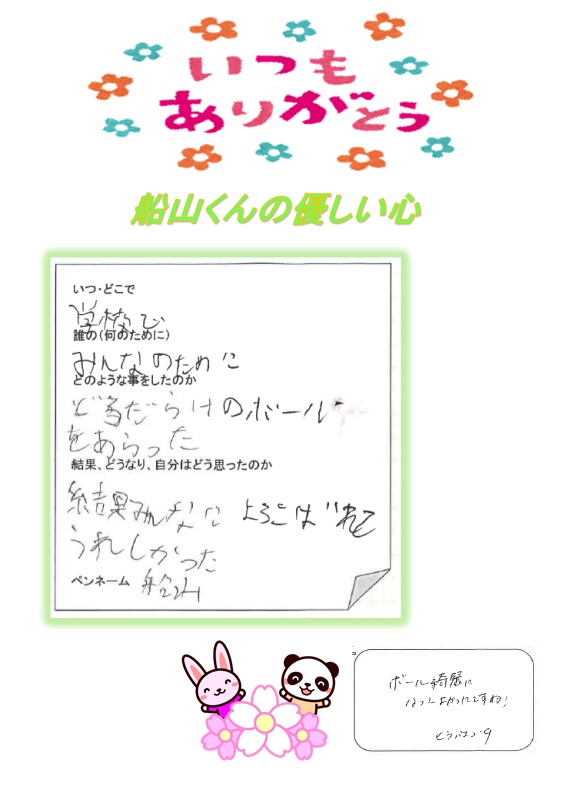 いつも
ありがとう
船山くんの優しい心
いつ・どこで
学校で
誰の(何のために)
みんなのために
どのような事をしたのか
ど ろだらけのボール
をあらった
結果、どうなり、自分はどう思ったのか
結果みんなに よろこばれて
うれしかった
ペンネーム 船山
ボール綺麗に
なって